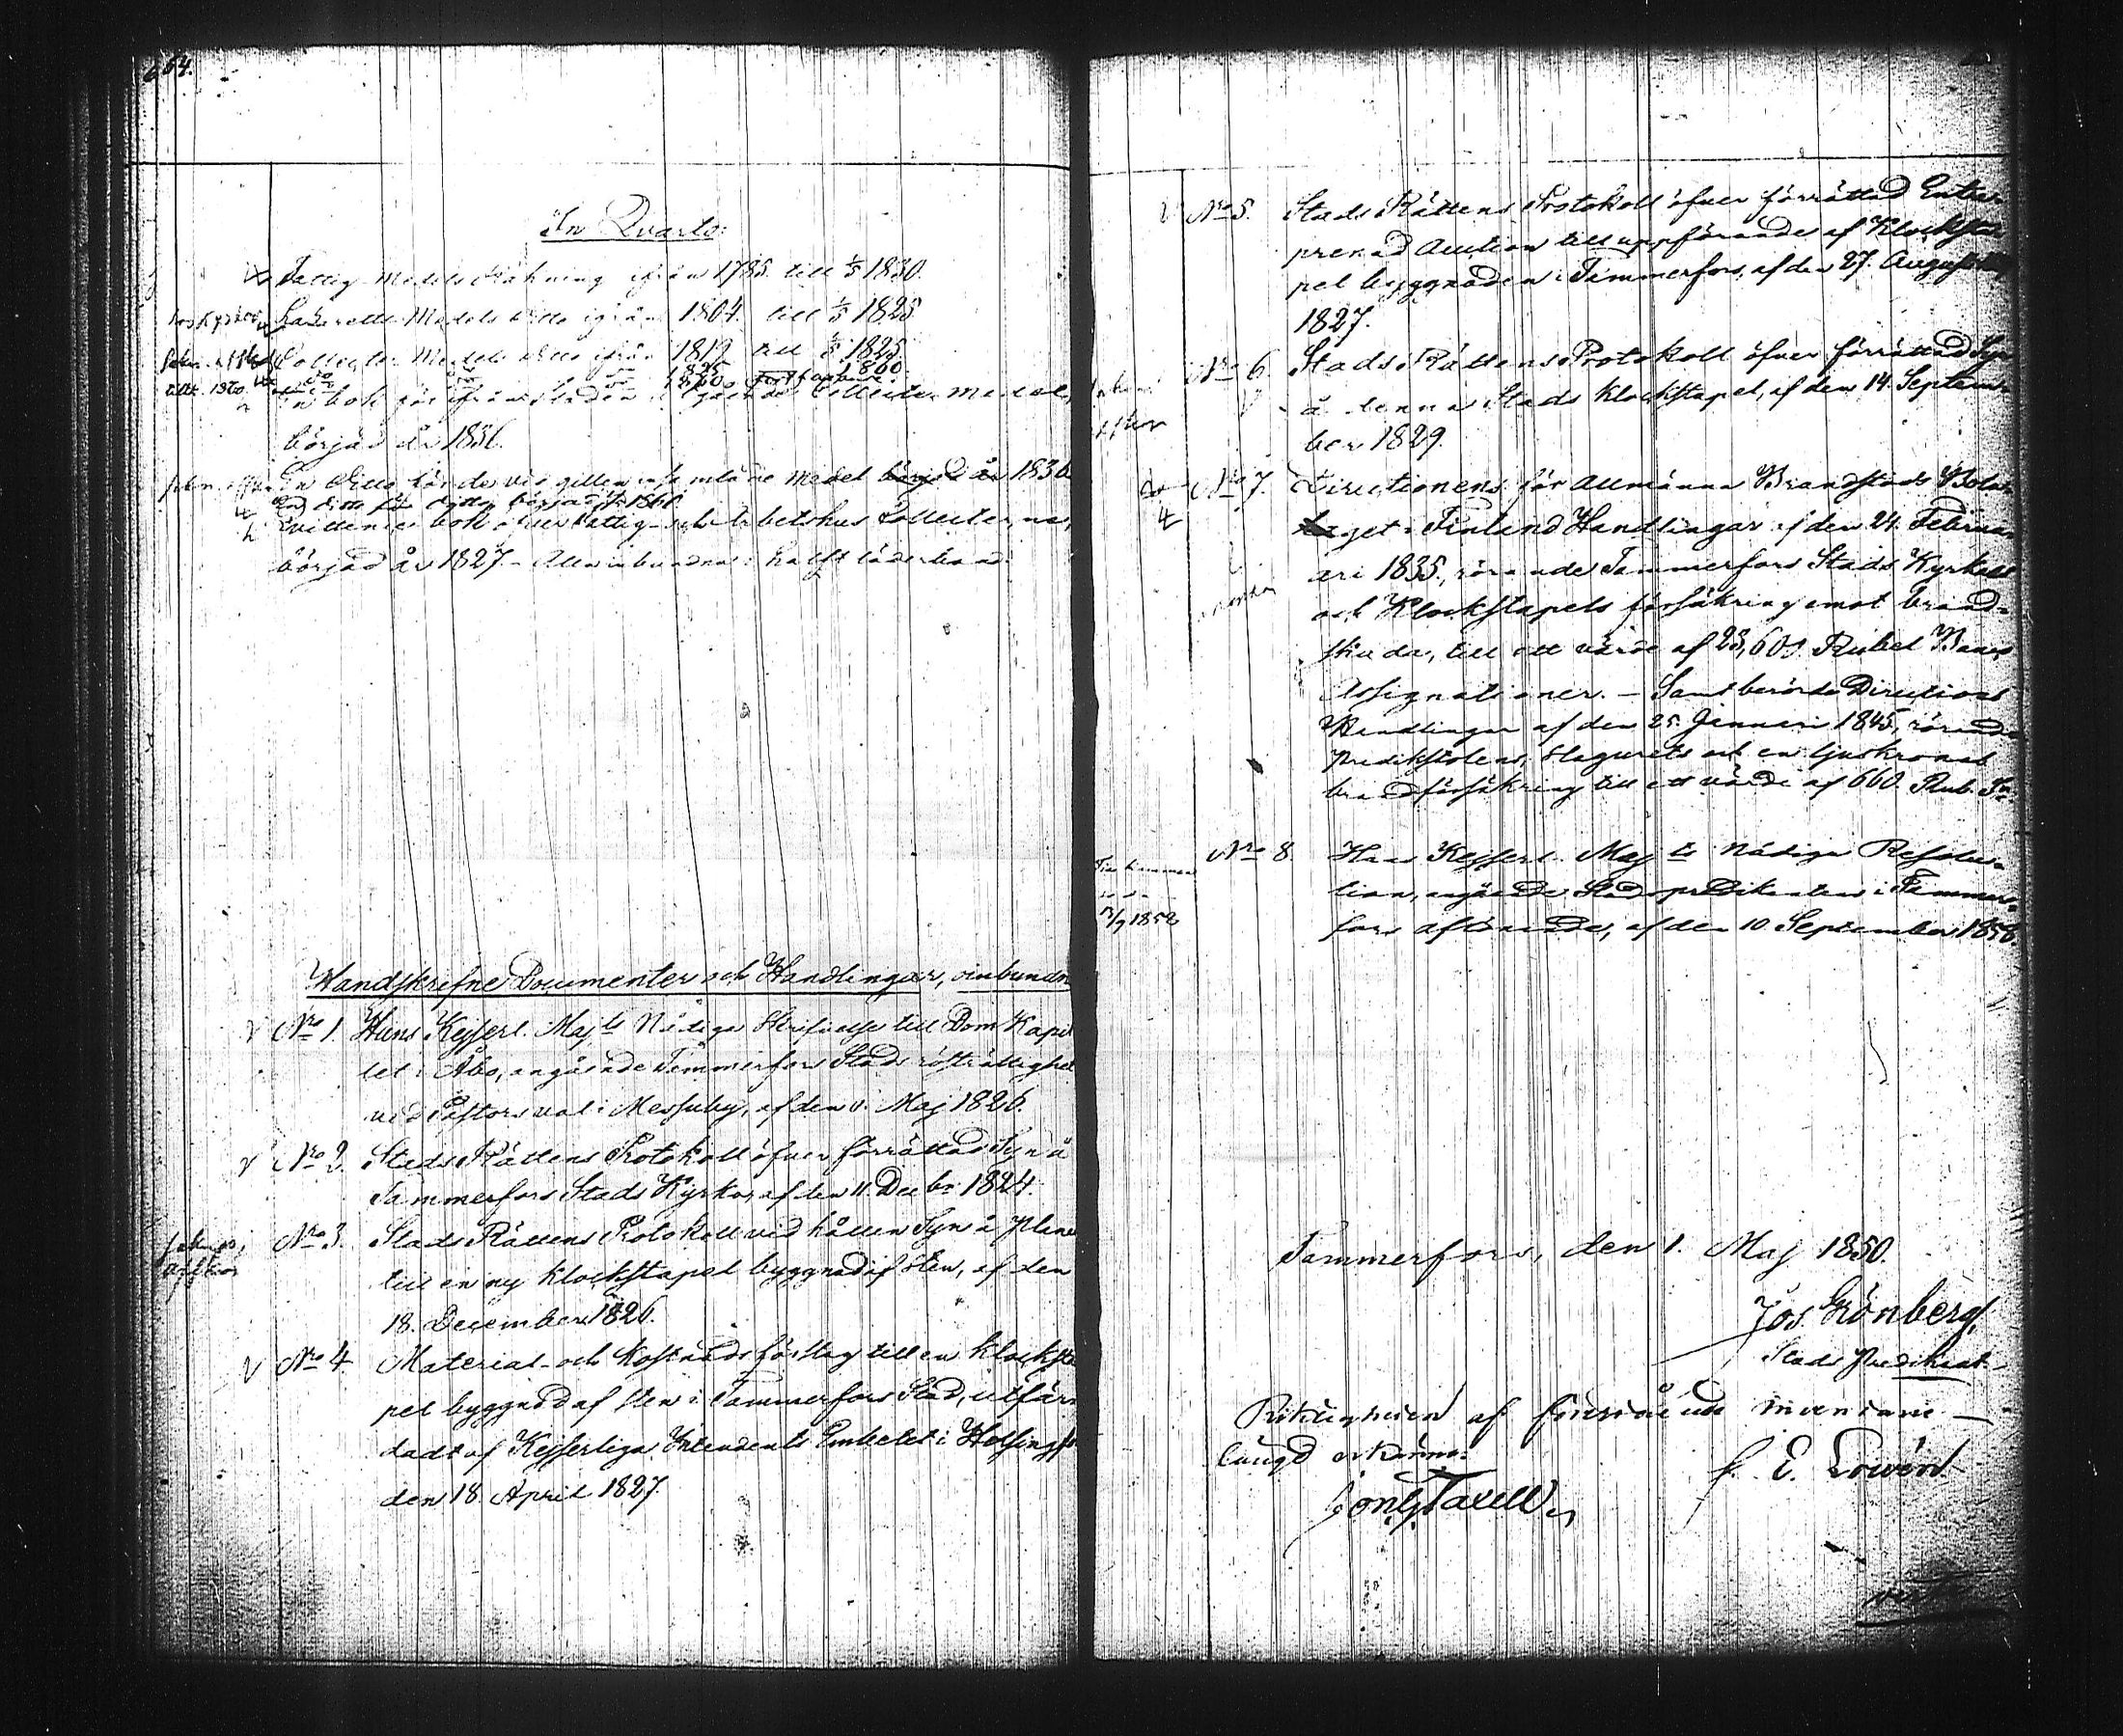 664.
In Quarto:
Fattig Medels Räkning ifrån 1785. till 1/5 1830.
Lazaretts Medels ditto ifrån 1804. till 1/5 1825
Collecte Medels ditto ifrån 1819 till 1/5 1825.
1825 1860.
En bok för ifrån Staden Collecter medel,
börjad år 1836.
En ditto för de vid gillen medel börjad år 1836
En ditto för ditto börjad år 1860
Evidence bok öfver Fattig- och Arbetshus Collecterne,
börjad år 1827. - Alla inbundna i halft läderband.
Handskrefne Documenter och Handlingar, oinbundn
v No 1. Hans Kejserl. Majts Nådiga Skrifvelse till Dom Kapit
let i Åbo, angående Tammerfors Stads rösträttighet
vid Pastorsval i Messuby, af den 11. Maj 1826.
v No 2. Stads Rättens Protokoll öfver förrättad Syn å
Tammerfors Stads Kyrka, af den 11. Decbr 1824.
No 3. Stads Rättens Protokoll vid hållen Syn å plane
till en ny klockstapel byggnad af sten, af den
18. December 1826.
v No 4 Material- och Kostnads förslag till en Klocksta
pel byggnad af sten i Tammerfors Stad, utfär
dadt af Kejserliga Intendents Embetet i Helsingfors
den 18. April 1827.
v No 5. Stads Rättens Protokoll öfver förrättad Entre
prenad Auction till uppförande af Klocksta
pel byggnaden i Tammerfors, af den 27. Augusti
1827.
No 6. Stads Rättens Protokoll öfver förrättad Syn
å denna Stads Klockstapel, af den 14. Septem-
ber 1829.
No 7. Directionens för Allmänna Brandstods Bola
get i Finland Handlingar af den 24. Februa-
ari 1835, rörande Tammerfors Stads Kyrkas
och Klockstapels försäkring emot brand-
skada, till ett värde af 23,600 Rubel Banco
Assignationer. - Samt berörde Directions
Handlingar af den 25. Januari 1845, rörande
Predikstolens, Orgverkets och en ljuskronas
brandförsäkring till ett värde af 660. Rub. Sr.
No 8. Hans Kejserl. Majts Nådiga Resolu-
tion, angående Stadspredikanten i Tammer-
fors aflönande, af den 10 September 1858
1858
Tammerfors, den 1. Maj 1850.
Jos. Grönberg,
Stads Predikant
Riktigheten af förestående inventarie
längd erkännes:
Taxell
E. Lovén